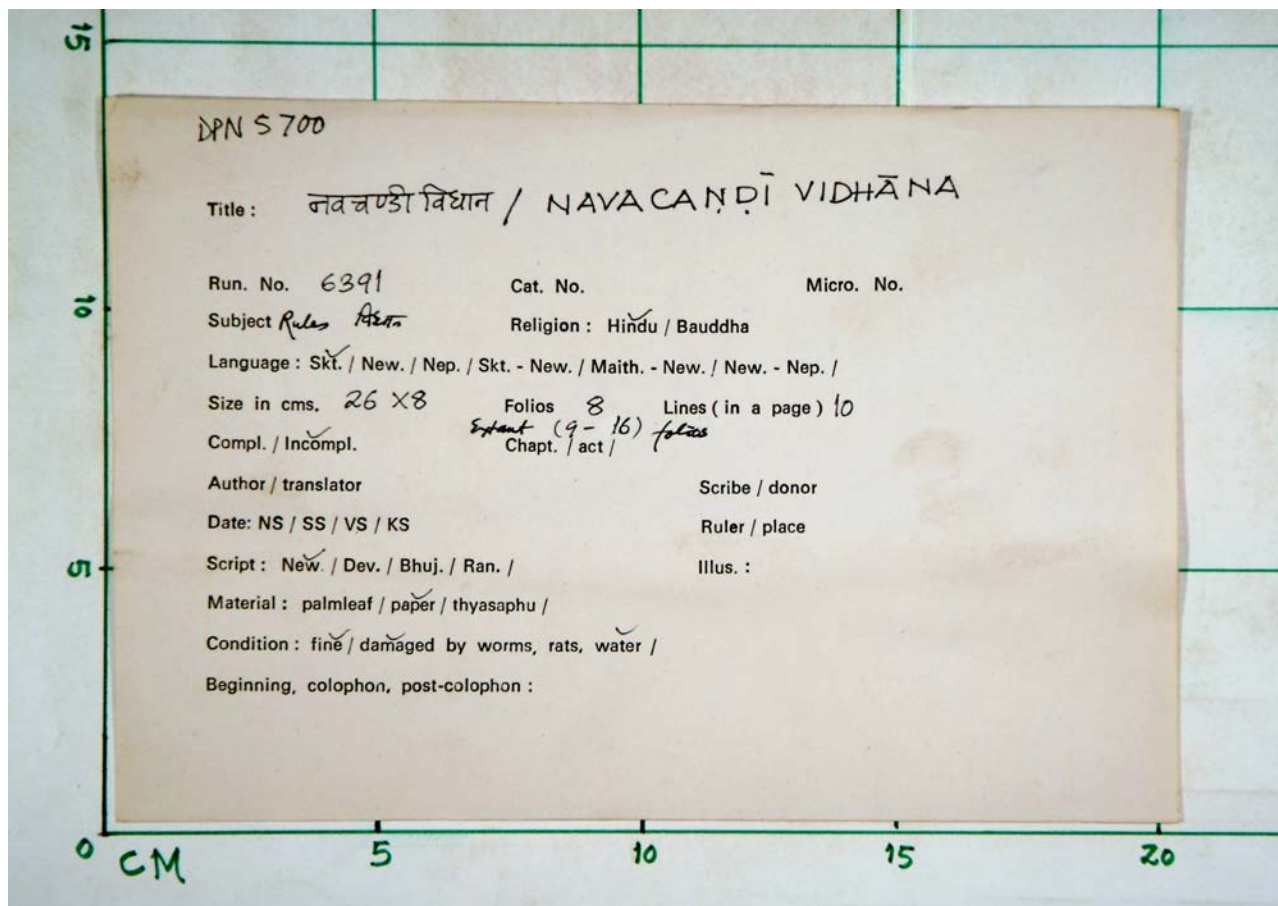 15
DPN 5700
Title : नवचण्डी विधान / NAVACAṆḌĪ VIDHĀNA
Run. No. 6391 Cat. No. Micro. No.
10
Subject Rules विधान Religion : Hindu / Bauddha
Language : Skt. / New. / Nep. / Skt. - New. / Maith. - New. / New. - Nep. /
Size in cms. 26 X 8 Folios 8 Lines ( in a page ) 10
Extant (9 - 16) folios
Compl. / Incompl. Chapt. / act /
Author / translator Scribe / donor
Date: NS / SS / VS / KS Ruler / place
5
Script : New. / Dev. / Bhuj. / Ran. / Illus. :
Material : palmleaf / paper / thyasaphu /
Condition : fine / damaged by worms, rats, water /
Beginning, colophon, post-colophon :
0 CM 5 10 15 20